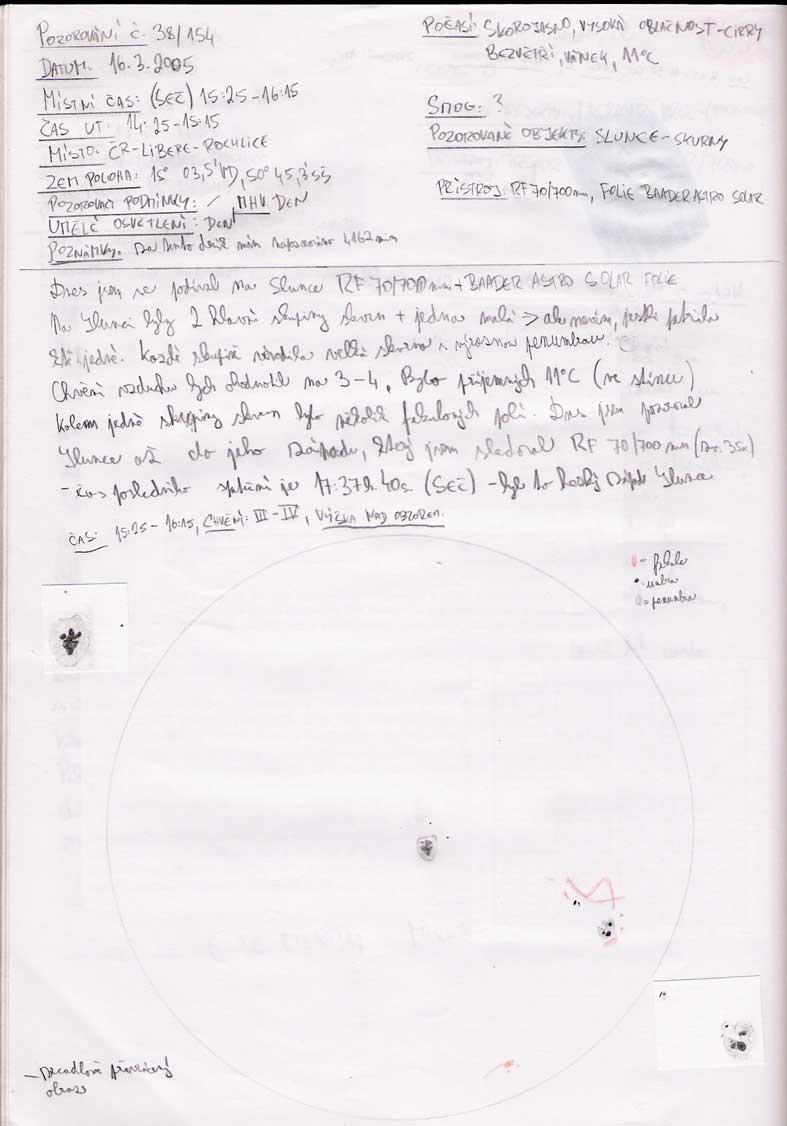 POZOROVÁNÍ Č. 38/154
DATUM: 16.3.2005
MÍSTNÍ ČAS: (SEČ) 15:25-16:15
ČAS UT: 14:25-15:15
MÍSTO: ČR-LIBERE-ROCHLICE
ZEM. POLOHA: 15° 03,5'VD, 50° 45,3'SŠ
POZOROVACÍ PODMÍNKY: / MHV: DEN
UMĚLÉ OSVĚTLENÍ: DEN
POZNÁMKY: Za tento deník mám napozorováno 4162 min
POČASÍ: SKOROJASNO, VYSOKÁ OBLAČNOST-CIRRY
BEZVĚTŘÍ, VÁNEK, 11°C
SMOG: 3
POZOROVANÉ OBJEKTY: SLUNCE-SKVRNY
PŘÍSTROJ: RF 70/700mm, FOLIE BAADER ASTRO SOLAR
Dnes jsem se podíval na Slunce RF 70/700mm + BAADER ASTRO SOLAR FOLIE
Na Slunci byly 2 hlavní skupiny skvrn + jedna malá => ale nevím, jestli patřila
k té jedné. Každé skupině velká skvrna s výraznou penumbrou.
Chvění vzduchu bych ohodnotil na 3-4. Bylo příjemných 11°C (ve stínu)
Kolem jedné skupiny skvrn bylo několik fakulových polí. Dnes jsem pozoroval
Slunce až do jeho západu, který jsem sledoval RF 70/700 mm (zv. 35x)
- čas posledního spatření je 17:37h. 40s. (SEČ) - byl to hezký západ Slunce
ČAS: 15:25-16:15, CHVĚNÍ: III-IV, VÝŠKA NAD OBZOREM:
- fakule
- umbra
= penumbra
- Zrcadlově převrácený
obraz